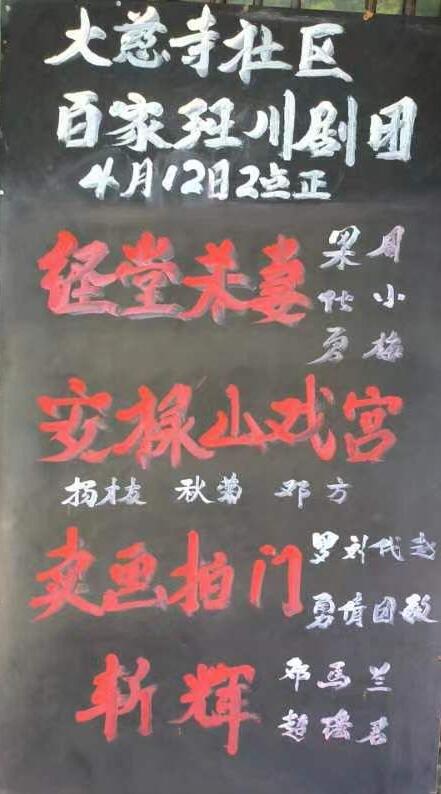 大慈寺社区
百家班川剧团
4月12日2点正
经堂杀妻
周小梅
安禄山戏宫
杨枝 秋菊 邓方
卖画拍门
罗勇 刘倩 代团 赵敏
斩辉
邓超 马瑶 兰君